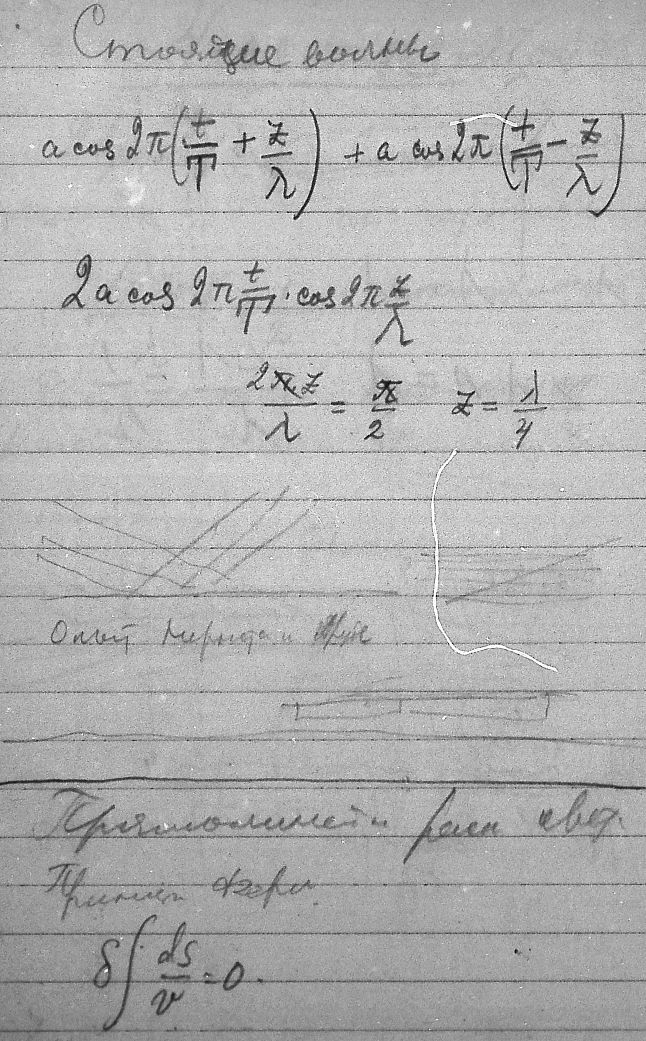 Стоящие волны
a cos 2π(t/T + z/λ) + a cos 2π(t/T − z/λ)
2a cos 2π t/T · cos 2π z/λ
2πz/λ = π/2 z = λ/4
Опыт
Прямолиней расп свет.
δ∫ ds/v = 0.